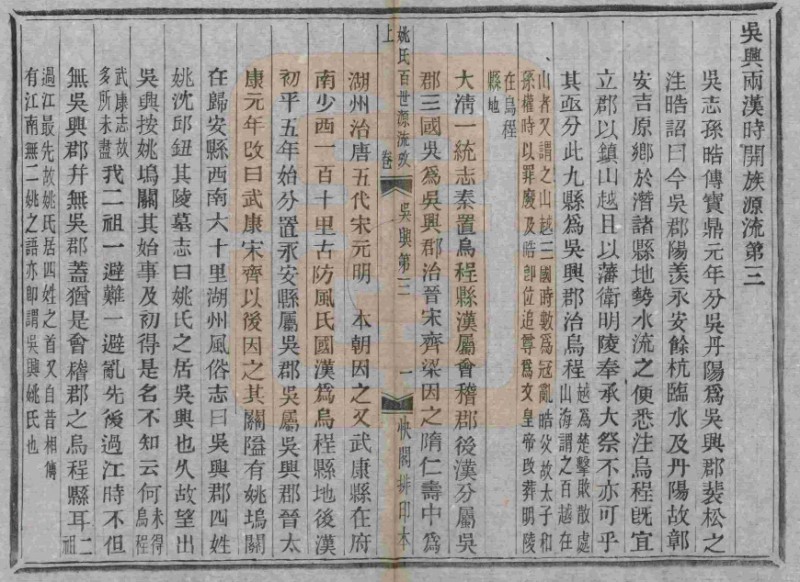 吳興兩漢時開族源流第三
吳志孫晧傳寶鼎元年分吳丹陽爲吳興郡裴松之
注晧詔曰今吳郡陽羨永安餘杭臨水及丹陽故鄣
安吉原鄉於潛諸縣地勢水流之便悉注烏程旣宜
立郡以鎮山越且以藩衛明陵奉承大祭不亦可乎
其亟分此九縣爲吳興郡治烏程
越爲楚擊敗散處
山海謂之百越在
山者又謂之山越三國時數爲寇亂晧父故太子和
孫權時以罪廢及晧卽位追尊爲文皇帝改葬明陵
在烏程
縣地
大淸一統志秦置烏程縣漢屬會稽郡後漢分屬吳
郡三國吳爲吳興郡治晉宋齊梁因之隋仁壽中爲
湖州治唐五代宋元明 本朝因之又武康縣在府
南少西一百十里古防風氏國漢爲烏程縣地後漢
初平五年始分置永安縣屬吳郡吳屬吳興郡晉太
康元年改曰武康宋齊以後因之其關隘有姚塢關
在歸安縣西南六十里湖州風俗志曰吳興郡四姓
姚沈邱鈕其陵墓志曰姚氏之居吳興也久故望出
吳興按姚塢關其始事及初得是名不知云何
未得
烏程
武康志故
多所未盡
我二祖一避難一避亂先後過江時不但
無吳興郡幷無吳郡蓋猶是會稽郡之烏程縣耳
二
祖
過江最先故姚氏居四姓之首又自昔相傳
有江南無二姚之語亦卽謂吳興姚氏也
姚氏百世源流攷 卷上 吳興第三 一 快閣排印本